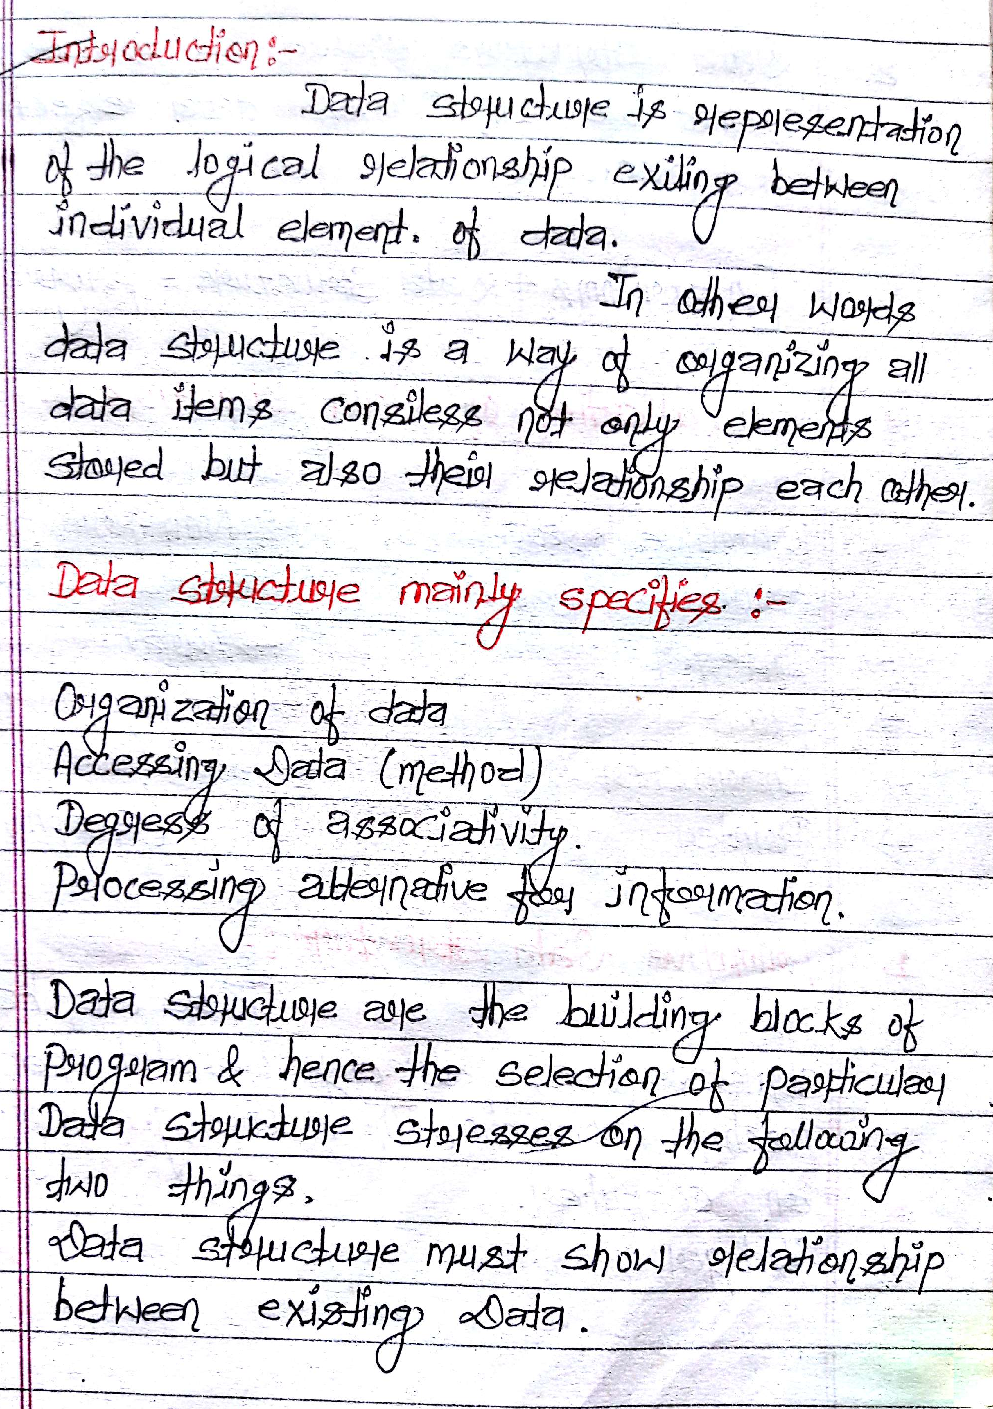 Introduction:-
Data structure is representation
of the logical relationship exiting between
individual element. of data.
In other words
data structure is a way of organizing all
data items consiless not only elements
stored but also their relationship each other.
Data structure mainly specifies :-
Organization of data
Accessing Data (method)
Degress of associativity.
Processing alternative for information.
Data structure are the building blocks of
Program & hence the selection of particular
Data structure stresses on the following
two things.
Data structure must show relationship
between existing Data.